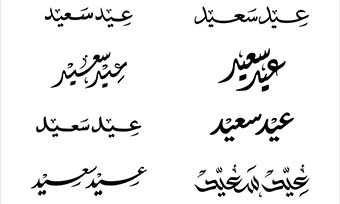 عيد سعيد
عيد سعيد
عيد سعيد
عيد سعيد
عيد سعيد
عيد سعيد
عيد سعيد
عيد سعيد